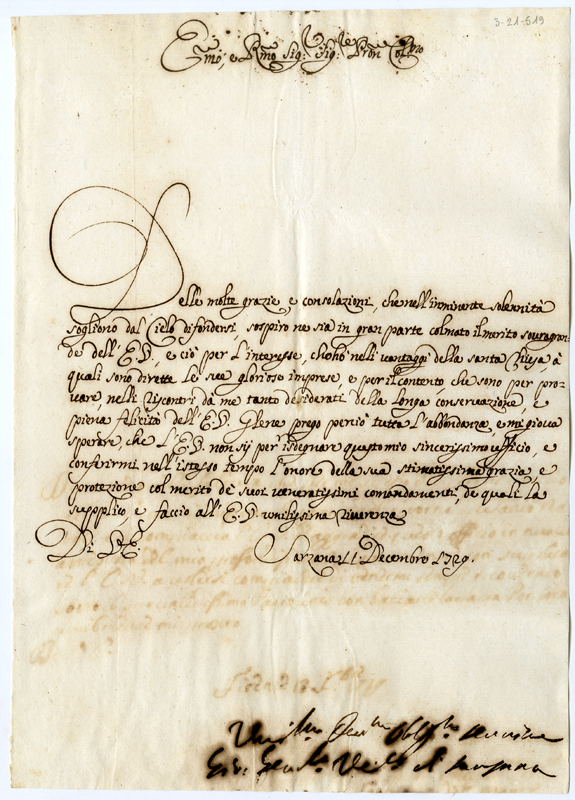 3-21-519
Emo, e Rmo Sig: Sig: e Pron Colmo
Delle molte grazie, e consolazioni, che nell'imminente solennità
sogliono dal Cielo difondersi, sospiro ne sia in gran parte colmato il merito sovragran=
de dell'E.V., e ciò per l'interesse, ch'ohò nelli vantaggi della santa Chiesa, à
quali sono dirette le sue gloriose imprese, e per il contento, che sono per pro=
vare, nelli riscontri da me tanto desiderati della longa conservazione, e
piena felicità dell'E.V. Gliene prego perciò tutta l'abbondanza, e mi giova
sperare, che l'E.V. non sij per isdegnare questo mio sincerissimo ufficio, e
conferirmi nell'istesso tempo l'onore della sua stimatissima grazia, e
protezione col merito de suoi veneratissimi comandamenti, de quali la
supplico, e faccio all'E.V. umilissima riverenza
Di V.E.
Sarzana 11: Decembre 1729.
Umilmo Obligmo servitore
Gio: